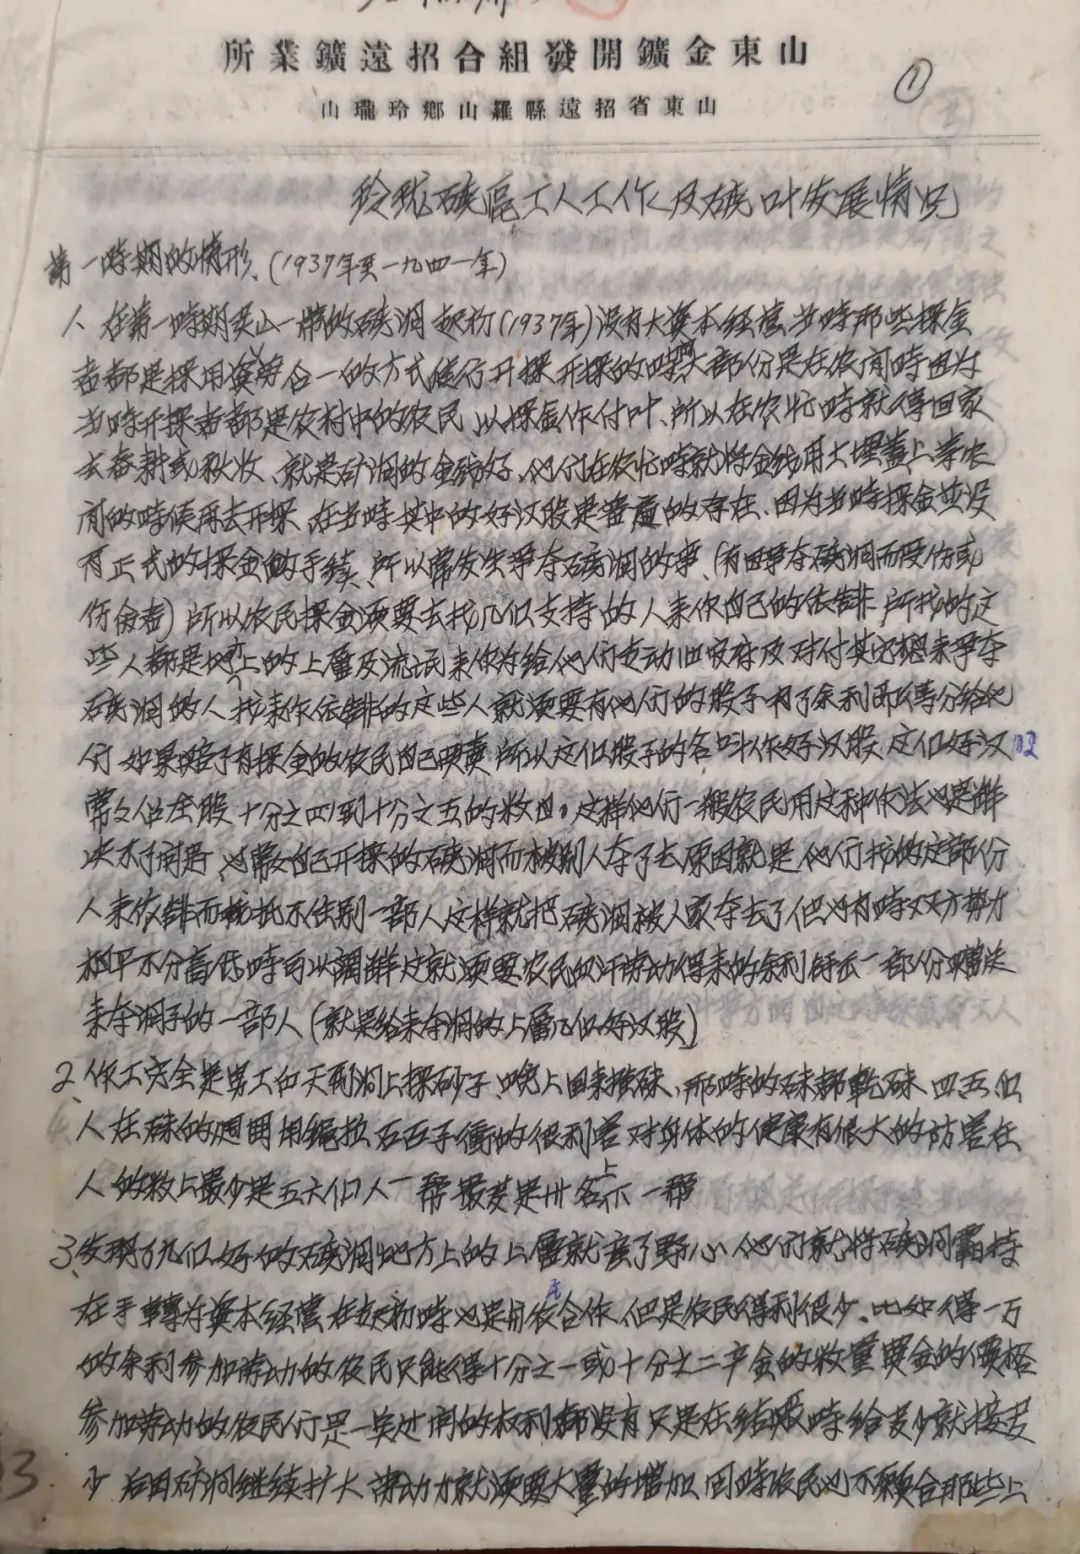 所業鑛遠招合組發開鑛金東山
山瓏玲鄉山羅縣遠招省東山
①
玲珑硗區工人工作及硗叶发展情况
第一時期的情形、(1937年至一九四一年)
1、在第一時期灵山一帶的硗洞起初(1937年)没有大資本经营当時那些採金
者都是採用資劳合一的方式進行开採开採的時間大部份是在农闲時因为
当時开採者都是农村中的农民以採金作付叶、所以在农忙時就得回家
去春耕或秋收、就是矿洞的金线好、他们在农忙時就将金线用土埋蓋上等农
闲的時候再去开採、在当時其中的好汉股是普遍的存在、因为当時採金並没
有正式的採金的手续、所以常发生争夺硗洞的事、(有因争夺硗洞而受伤或
伤命者)所以农民採金须要去找几们支持的人来作自己的依靠所找的这
些人都是地方上的上層及流氓来作为给他们
硗洞的人找来作依靠的这些人就须要有他们的股子有了余利即得分给他
们如果賠了有採金的农民自己 所以这们股子的名叫作好汉股这们好汉 02
常々佔全股十分之四到十分之五的数目。这样他们一般农民用这种作法也是解
决不了问是 也常々自己开採的硗洞而被别人夺了去原因就是他们找的这部份
人来依靠而 抵不住别一部人这样就把硗洞被人家夺去了但也有時双方势力
相平不分高低時可以調解这就须要农民的 劳动得来的余利 一部份贈送
来夺洞子的一部人(就是给来夺洞的上層几们好汉股)
2、作工完全是男工白天到洞上採砂子、晚上回来 那時的 都 四五们
人在 的周围用繩拉 很利害对身体的健康有很大的访害在
人的数上最少是五六们人一帮最多是卅名上下一帮
3、发現了几们好的硗洞地方上的上層就变了野心他们就将硗洞霸持
在手轉为資本经营在起初時也是用农合作但是农民得利很少、比如得一万
的余利参加劳动的农民只能得十分之一或十分之二 金的数量賣金的價格
参加劳动的农民们是一 过问的权利都没有只是在结股時给多少就接多
少 后因矿洞继续扩大劳动力就须要大量的增加同時农民也不願合那些上
3